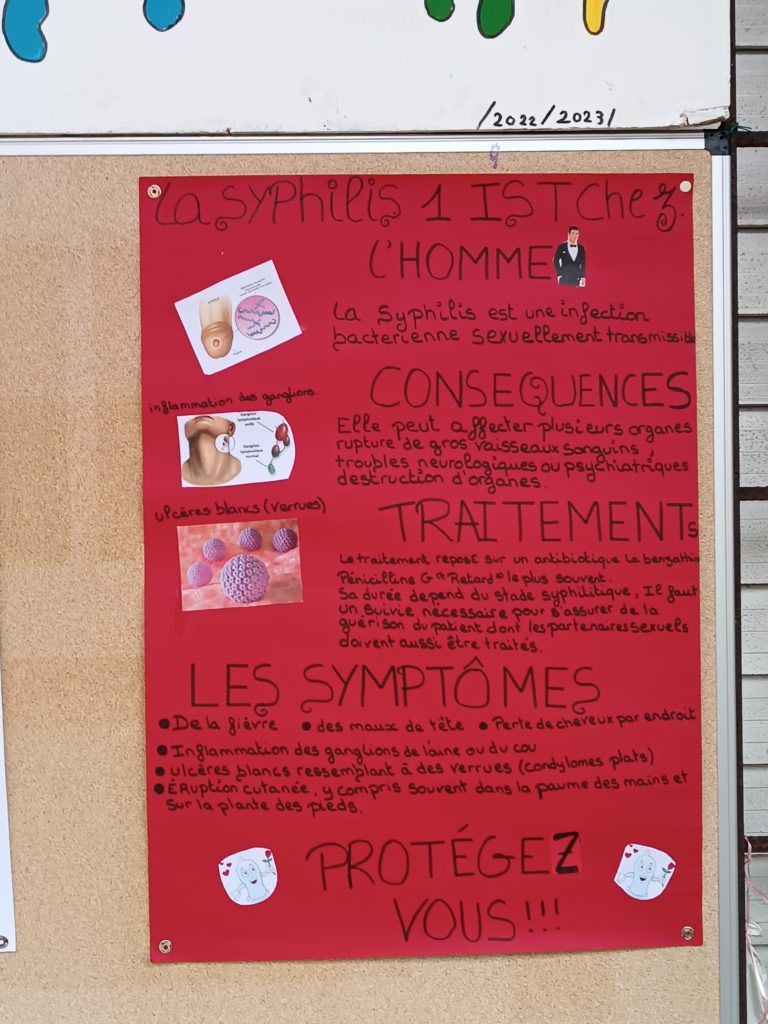 /2022/2023/
La SYPhiLiS 1 IST Chez
L'HOMME
La Syphilis est une infection
bacterienne sexuellement transmissible
CONSEQUENCES
inflammation des ganglions
Elle peut affecter plusieurs organes
rupture de gros vaisseaux sanguins,
troubles neurologiques ou psychiatriques
destruction d'organes.
Ganglion
lymphatique
Ganglion
lymphatique
normal
ulcères blancs (verrues)
TRAITEMENTs
Le traitement repose sur un antibiotique la benzathin
Pénicilline G "Retard" le plus souvent.
Sa durée depend du stade syphilitique, Il faut
un suivie nécessaire pour s'assurer de la
guérison du patient dont les partenaires sexuels
doivent aussi être traités.
LES SYMPTÔMES
• De la fièvre • des maux de tête • Perte de cheveux par endroit
• Inflammation des ganglions de l'aine ou du cou
• ulcères blancs ressemblant à des verrues (condylomes plats)
• Éruption cutanée, y compris souvent dans la paume des mains et
sur la plante des pieds.
PROTÉGEZ
VOUS!!!